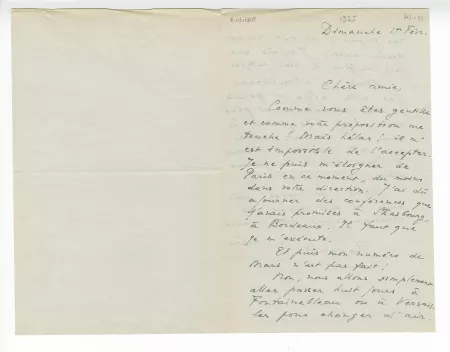 RIVIERE
1925
Dimanche 1er Févr.
Chère amie,
Comme vous êtes gentille
et comme votre proposition me
touche ! Mais hélas ! il m'
est impossible de l'accepter.
Je ne puis m'éloigner de
Paris en ce moment, du moins
dans votre direction. J'ai dû
ajourner des conférences que
j'avais promises à Strasbourg,
à Bordeaux. Il faut que
je m'exécute.
Et puis mon numéro de
Mars n'est pas fait !
Non, nous allons simplement
aller passer huit jours à
Fontainebleau ou à Versail
les pour changer d'air.